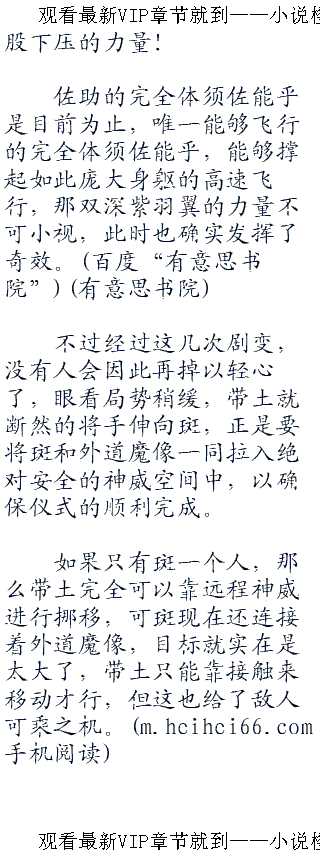 观看最新VIP章节就到——小说
股下压的力量!
佐助的完全体须佐能乎
是目前为止，唯一能够飞行
的完全体须佐能乎，能够撑
起如此庞大身躯的高速飞
行，那双深紫羽翼的力量不
可小视，此时也确实发挥了
奇效。(百度“有意思书
院”)(有意思书院)
不过经过这几次剧变，
没有人会因此再掉以轻心
了，眼看局势稍缓，带土就
断然的将手伸向斑，正是要
将斑和外道魔像一同拉入绝
对安全的神威空间中，以确
保仪式的顺利完成。
如果只有斑一个人，那
么带土完全可以靠远程神威
进行挪移，可斑现在还连接
着外道魔像，目标就实在是
太大了，带土只能靠接触来
移动才行，但这也给了敌人
可乘之机。(m.hcihci66.com
手机阅读)
观看最新VIP章节就到——小说